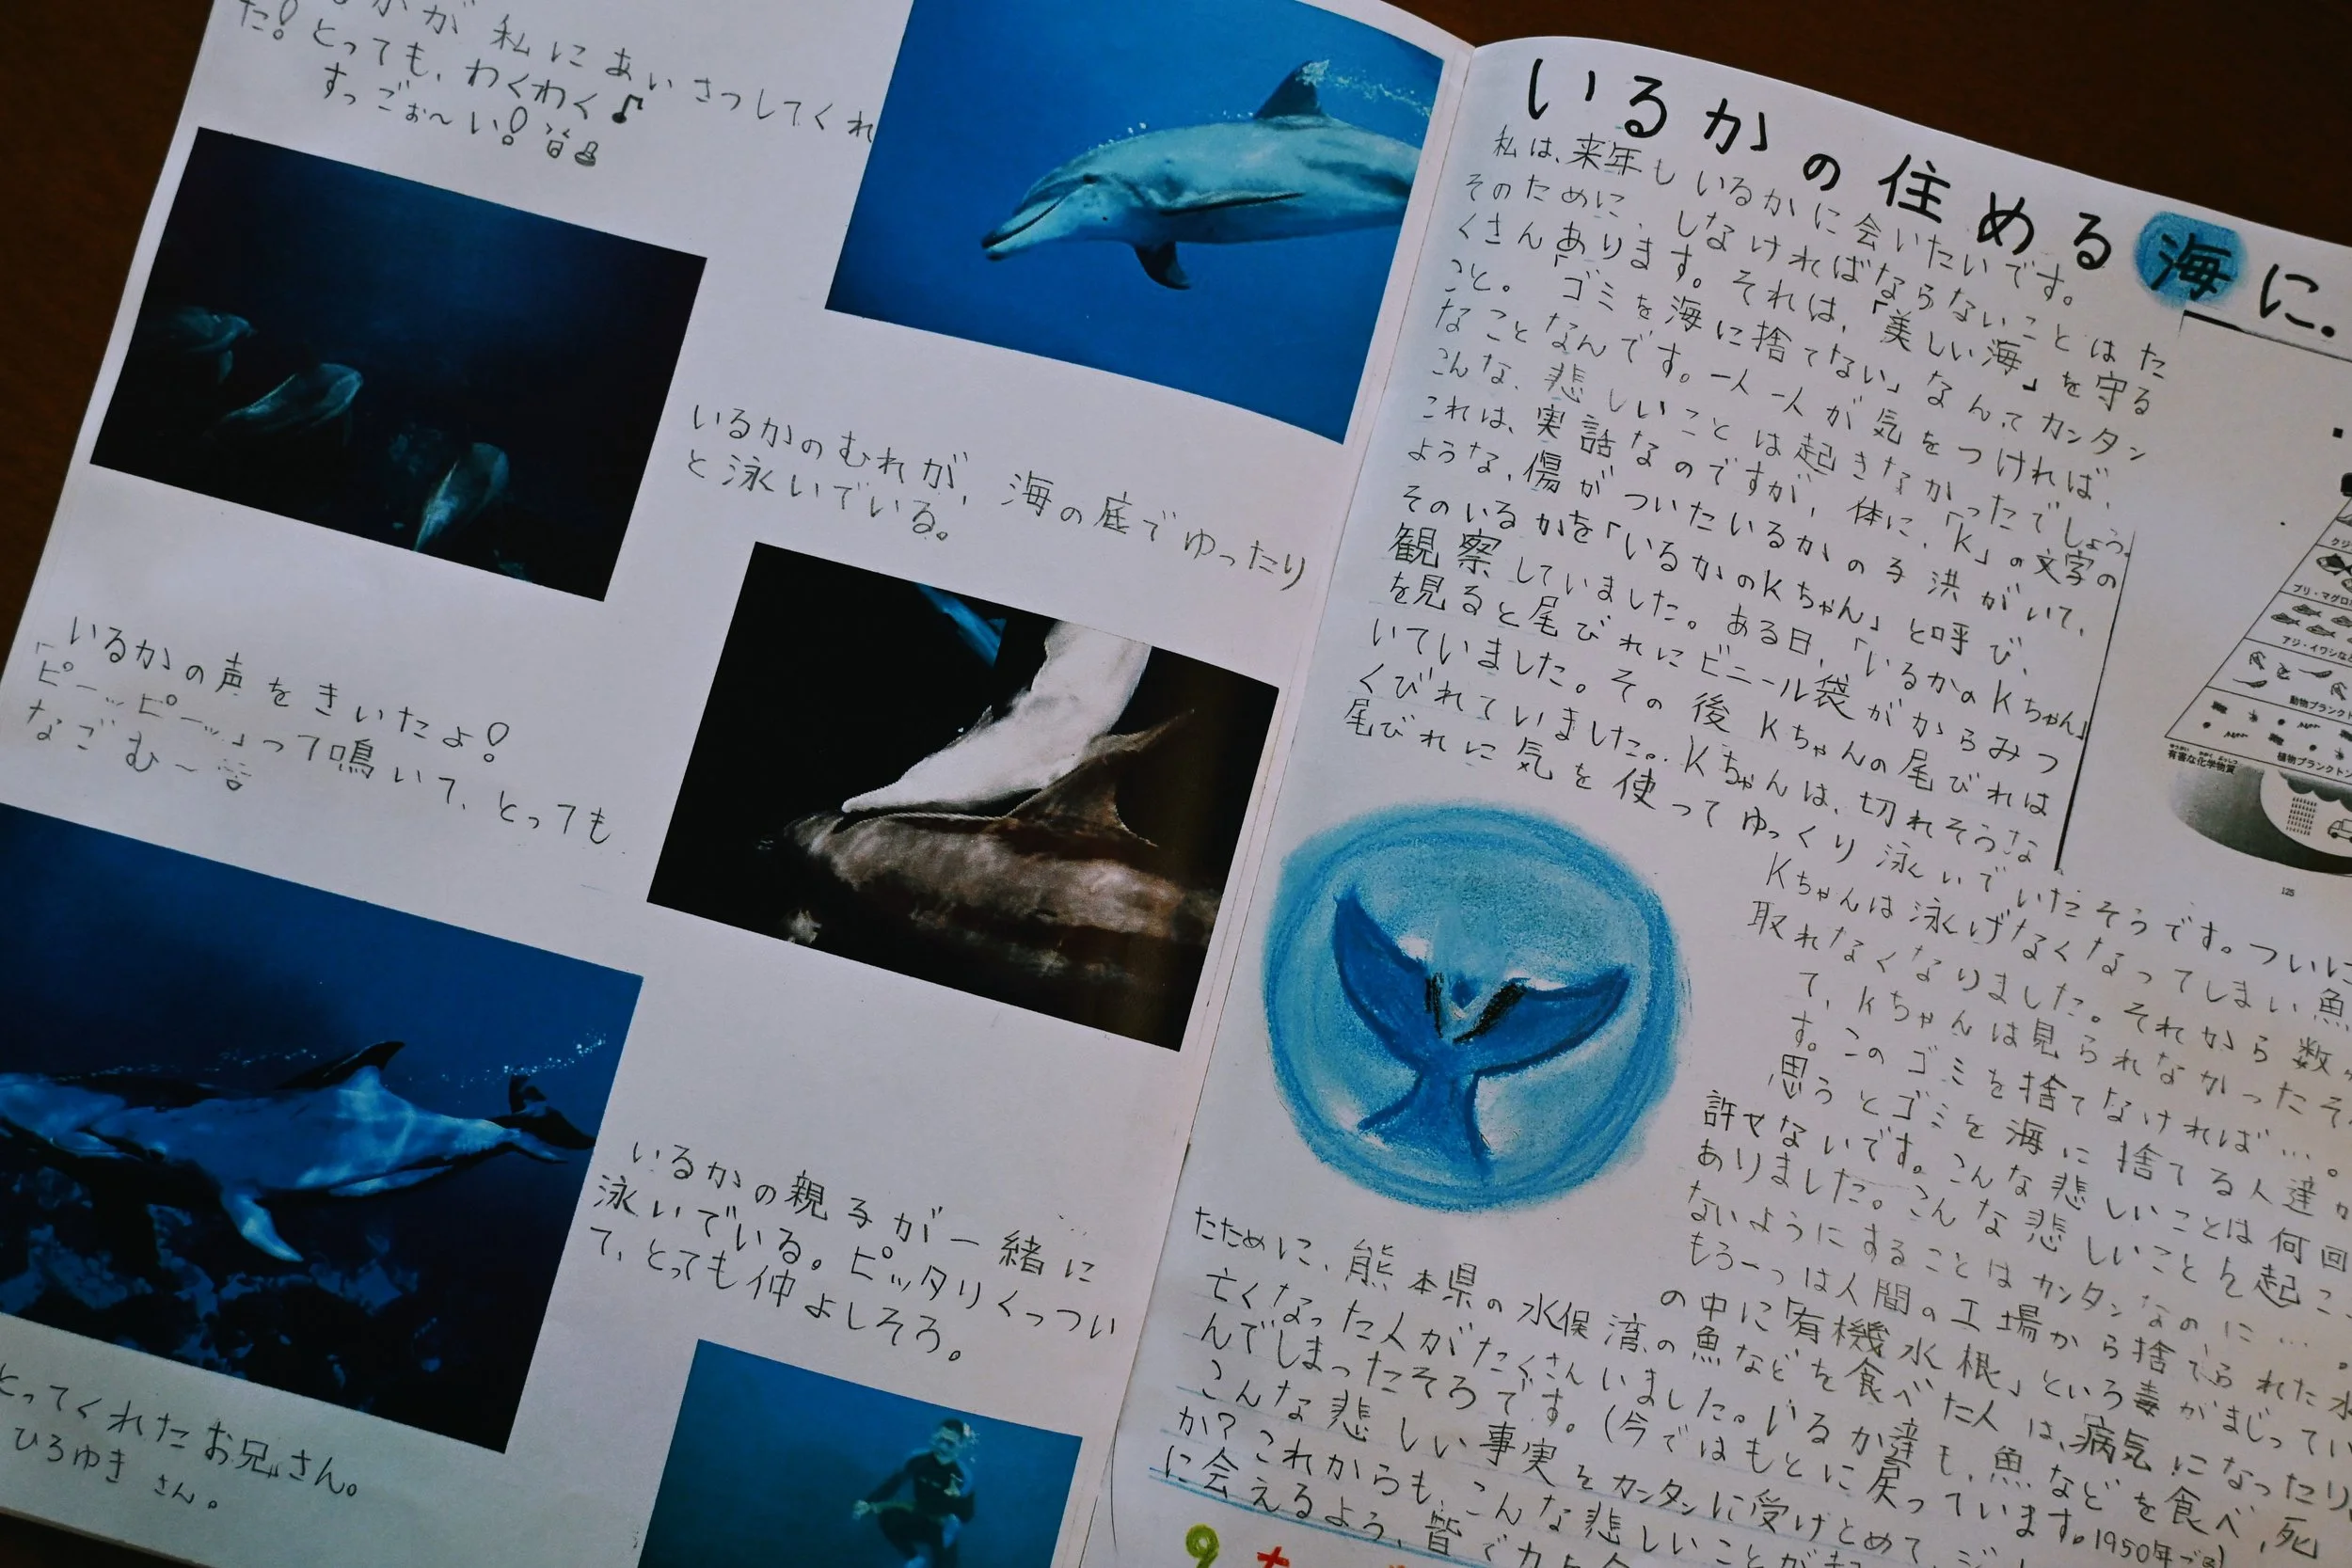 るかが私にあいさつしてくれ
た!とっても、わくわく♪
すっごぉ〜い!
いるかのむれが、海の底でゆったり
と泳いでいる。
いるかの声をきいたよ!
「ピーッピーッ」って鳴いて、とっても
なごむ〜
いるかの親子が一緒に
泳いでいる。ピッタリくっつい
て、とっても仲よしそう。
とってくれたお兄さん。
ひろゆきさん。
いるかの住める海に.
私は、来年もいるかに会いたいです。
そのために、しなければならないことはた
くさんあります。それは、「美しい海」を守る
こと。「ゴミを海に捨てない」なんてカンタン
なことなんです。一人一人が気をつければ、
こんな、悲しいことは起きなかったでしょう。
これは、実話なのですが、体に、「K」の文字の
ような、傷がついたいるかの子洪がいて、
そのいるかを「いるかのKちゃん」と呼び、
観察していました。ある日、「いるかのKちゃん」
を見ると尾びれにビニール袋がからみつ
いていました。その後Kちゃんの尾びれは
くびれていました。Kちゃんは、切れそうな
尾びれに気を使ってゆっくり泳いでいたそうです。ついに
Kちゃんは泳げなくなってしまい魚
取れなくなりました。それから数
て、Kちゃんは見られなかったそ
す。このゴミを捨てなければ…。
思うとゴミを海に捨てる人達が
許せないです。こんな悲しいことは何回
ありました。こんな悲しいことを起こ
ないようにすることはカンタンなのに…。
もう一つは人間の工場から捨てられた水
の中に「有機水根」という毒がまじってい
たために、熊本県の水俣湾の魚などを食べた人は、病気になったり
亡くなった人がたくさんいました。いるか達も、魚などを食べ、死
んでしまったそうです。(今ではもとに戻っています。1950年
こんな悲しい事実をカンタンに受けとめて、
か?これからも、こんな悲しいことが
に会えるよう、皆で力を
ブリ・マグロ
アジ・イワシなど
動物プランクト
植物プランクトン
有害な化学物質
125